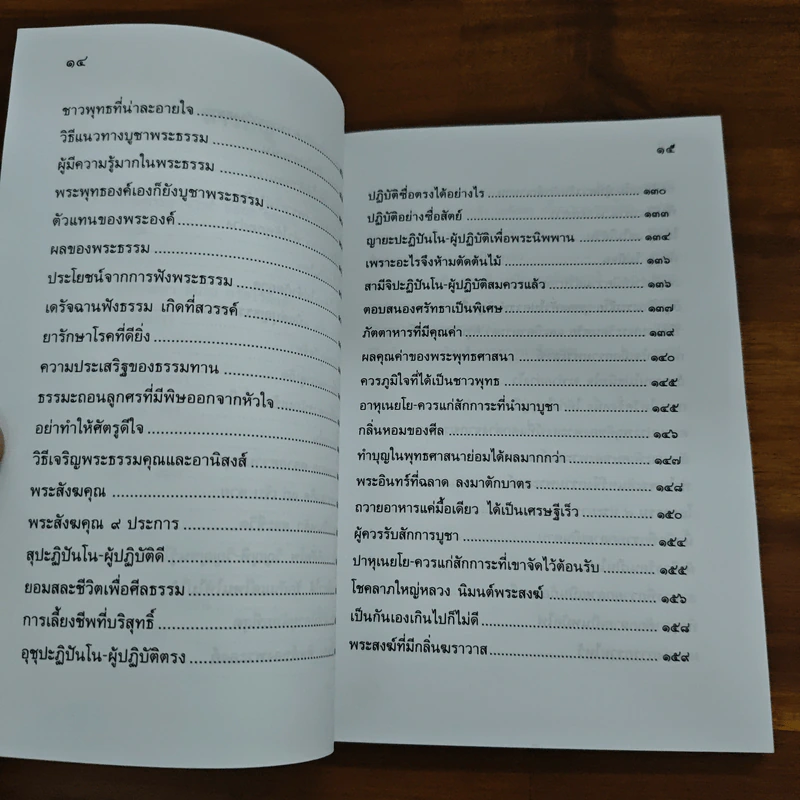 ๑๔
ชาวพุทธที่น่าละอายใจ
วิธีแนวทางบูชาพระธรรม
ผู้มีความรู้มากในพระธรรม
พระพุทธองค์เองก็ยังบูชาพระธรรม
ตัวแทนของพระองค์
ผลของพระธรรม
ประโยชน์จากการฟังพระธรรม
เดรัจฉานฟังธรรม เกิดที่สวรรค์
ยารักษาโรคที่ดียิ่ง
ความประเสริฐของธรรมทาน
ธรรมะถอนลูกศรที่มีพิษออกจากหัวใจ
อย่าทำให้ศัตรูดีใจ
วิธีเจริญพระธรรมคุณและอานิสงส์
พระสังฆคุณ
พระสังฆคุณ ๙ ประการ
สุปะฏิปันโน-ผู้ปฏิบัติดี
ยอมสละชีวิตเพื่อศีลธรรม
การเลี้ยงชีพที่บริสุทธิ์
อุชุปะฏิปันโน-ผู้ปฏิบัติตรง
๑๕
ปฏิบัติซื่อตรงได้อย่างไร ๑๓๐
ปฏิบัติอย่างซื่อสัตย์ ๑๓๓
ญายะปะฏิปันโน-ผู้ปฏิบัติเพื่อพระนิพพาน ๑๓๔
เพราะอะไรจึงห้ามตัดต้นไม้ ๑๓๖
สามีจิปะฏิปันโน-ผู้ปฏิบัติสมควรแล้ว ๑๓๖
ตอบสนองศรัทธาเป็นพิเศษ ๑๓๗
ภัตตาหารที่มีคุณค่า ๑๓๙
ผลคุณค่าของพระพุทธศาสนา ๑๔๐
ควรภูมิใจที่ได้เป็นชาวพุทธ ๑๔๕
อาหุเนยโย-ควรแก่สักการะที่นำมาบูชา ๑๔๕
กลิ่นหอมของศีล ๑๔๖
ทำบุญในพุทธศาสนาย่อมได้ผลมากกว่า ๑๔๗
พระอินทร์ที่ฉลาด ลงมาตักบาตร ๑๔๘
ถวายอาหารแค่มื้อเดียว ได้เป็นเศรษฐีเร็ว ๑๕๐
ผู้ควรรับสักการบูชา ๑๕๔
ปาหุเนยโย-ควรแก่สักการะที่เขาจัดไว้ต้อนรับ ๑๕๕
โชคลาภใหญ่หลวง นิมนต์พระสงฆ์ ๑๕๖
เป็นกันเองเกินไปก็ไม่ดี ๑๕๘
พระสงฆ์ที่มีกลิ่นฆราวาส ๑๕๙